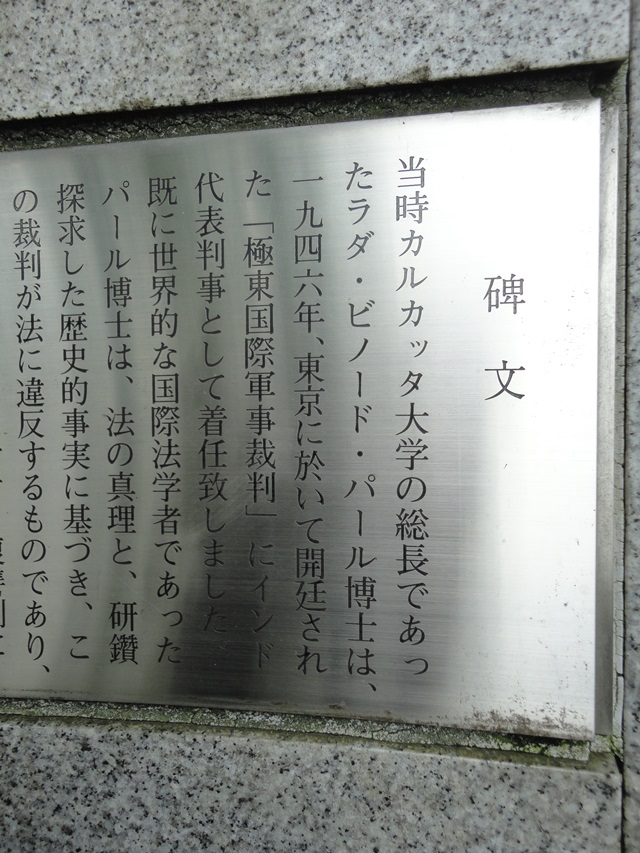 碑文
当時カルカッタ大学の総長であっ
たラダ・ビノード・パール博士は、
一九四六年、東京に於いて開廷され
た「極東国際軍事裁判」にインド
代表判事として着任致しました
既に世界的な国際法学者であった
パール博士は、法の真理と、研鑽
探求した歴史的事実に基づき、こ
の裁判が法に違反するものであり、